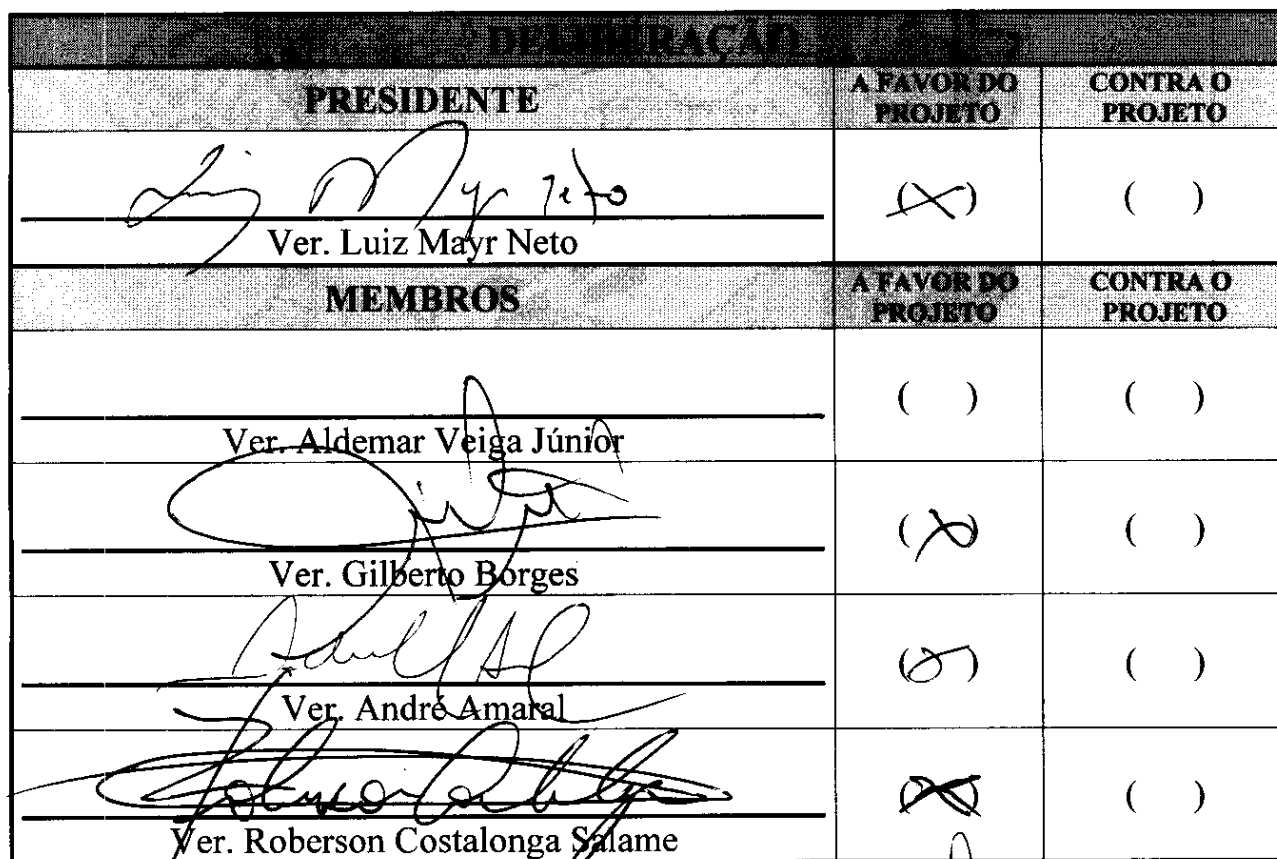 DELIBERAÇÃO
PRESIDENTE
A FAVOR DO PROJETO
CONTRA O PROJETO
(X)
( )
Ver. Luiz Mayr Neto
MEMBROS
A FAVOR DO PROJETO
CONTRA O PROJETO
( )
( )
Ver. Aldemar Veiga Júnior
(X)
( )
Ver. Gilberto Borges
( )
Ver. André Amaral
(X)
( )
Ver. Roberson Costalonga Salame